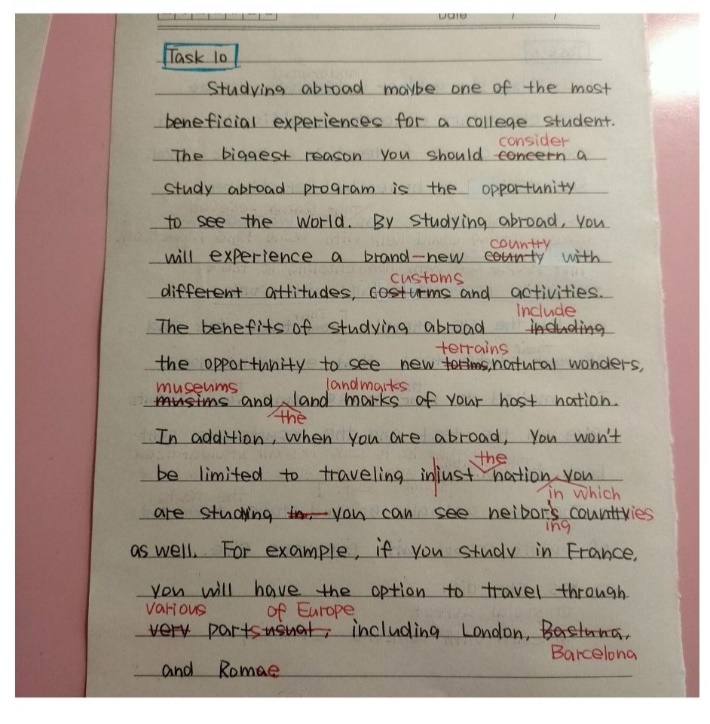 Date / /
Task 10
Studying abroad maybe one of the most
beneficial experiences for a college student.
consider
The biggest reason you should concern a
study abroad program is the opportunity
to see the world. By studying abroad, you
country
will experience a brand-new county with
customs
different attitudes, costurms and activities.
include
The benefits of studying abroad including
terrains
the opportunity to see new torims, natural wonders,
museums landmarks
musims and land marks of your host nation.
the
In addition, when you are abroad, you won't
the
be limited to traveling in just nation you
in which
are studying in, you can see neibor's countryies
ing
as well. For example, if you study in France,
you will have the option to travel through
various of Europe
very parts usual, including London, Bastuna,
Barcelona
and Romae